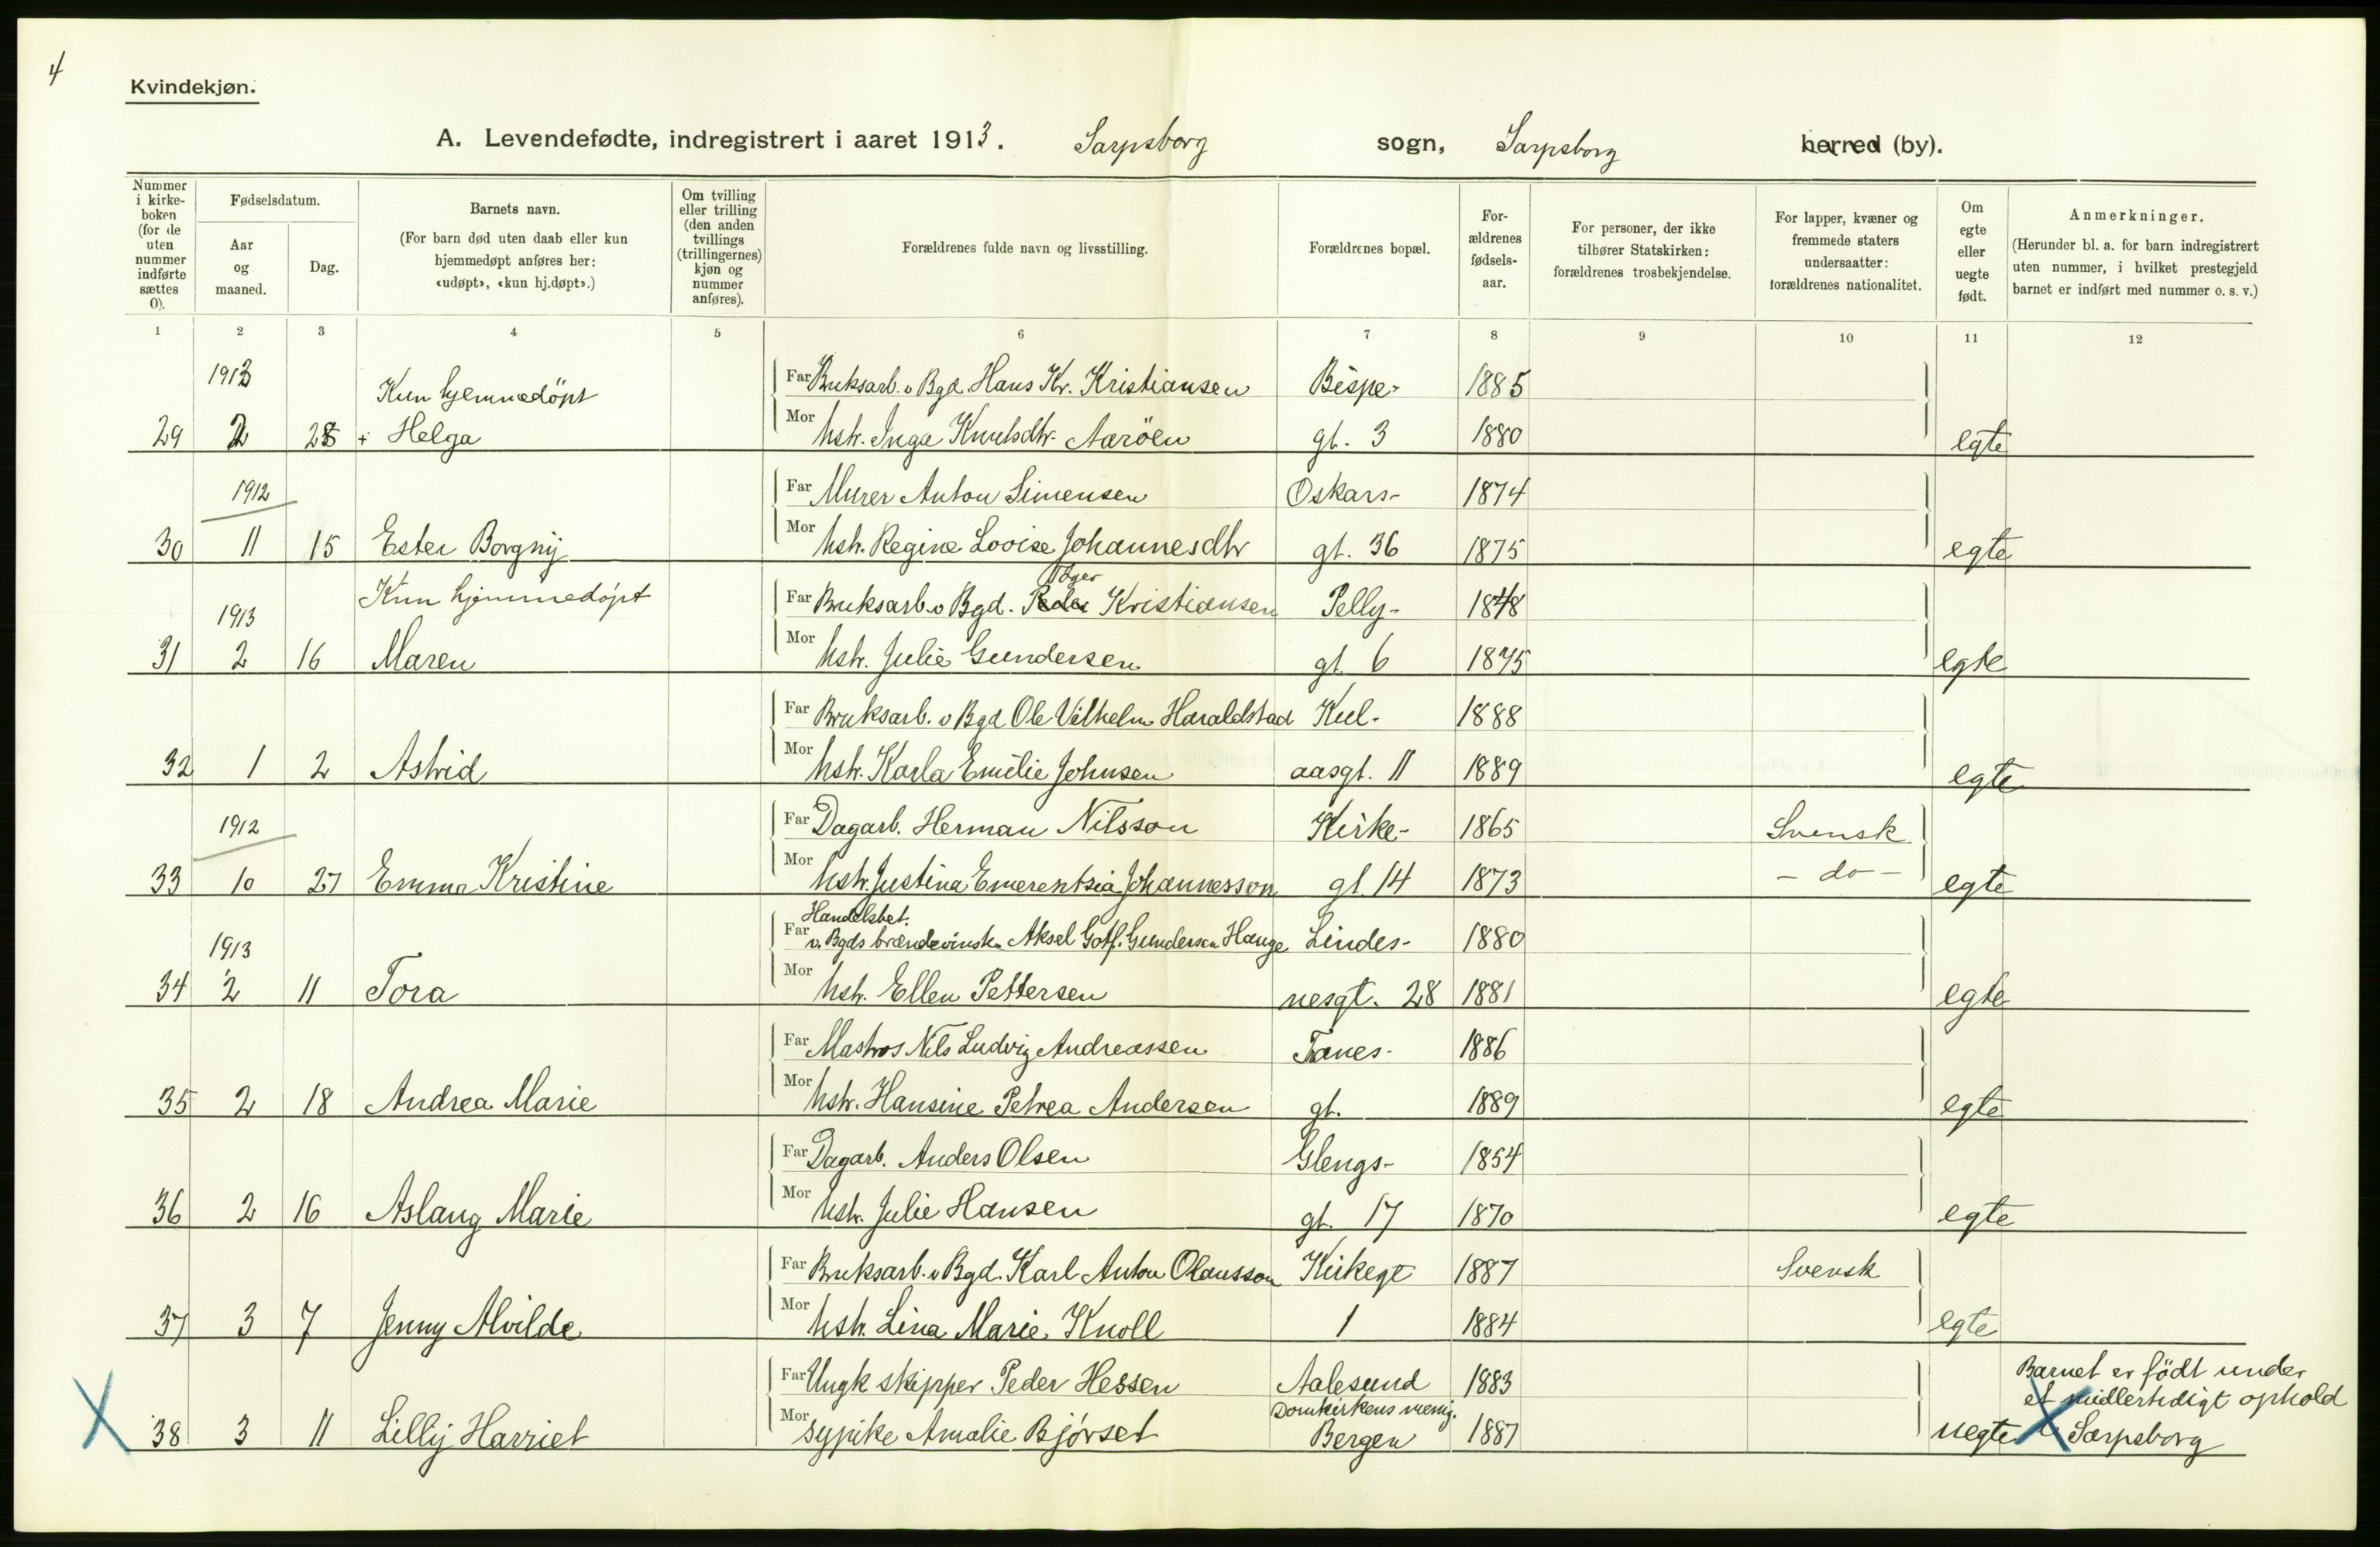 4
Kvindekjøn.
A. Levendefødte, indregistrert i aaret 1913. Sarpsborg sogn, Sarpsborg herred (by).
Nummer i kirkeboken (for de uten nummer indførte sættes 0).
Fødselsdatum.
Aar og maaned.
Dag.
Barnets navn.
(For barn død uten daab eller kun hjemmedøpt anføres her: «udøpt», «kun hj.døpt».)
Om tvilling eller trilling (den anden tvillings (trillingernes) kjøn og nummer anføres).
Forældrenes fulde navn og livsstilling.
Forældrenes bopæl.
Forældrenes fødselsaar.
For personer, der ikke tilhører Statskirken: forældrenes trosbekjendelse.
For lapper, kvæner og fremmede staters undersaatter: forældrenes nationalitet.
Om egte eller uegte født.
Anmerkninger.
(Herunder bl. a. for barn indregistrert uten nummer, i hvilket prestegjeld barnet er indført med nummer o. s. v.)
1 2 3 4 5 6 7 8 9 10 11 12
1913 Kun hjemmedöpt Far Bruksarb. v Bgd. Hans Kr. Kristiansen Bispe- 1885
29 2 + Helga Mor hstr. Inga Knutsdtr. Aaröen gt. 3 1880 egte
1912 Far Murer Anton Simensen Oskars- 1874
30 11 15 Ester Borgny Mor hstr. Regine Lovise Johannesdtr gt. 36 1875 egte
1913 Kun hjemmedöpt Far Bruksarb. v Bgd. Peder Kristiansen Pelly- 1848
31 2 16 Maren Mor hstr. Julie Gundersen gt. 6 1875 egte
Far Bruksarb. v Bgd Ole Vilhelm Haraldstad Kul- 1888
32 1 2 Astrid Mor hstr. Karla Emilie Johnsen aasgt. 11 1889 egte
1912 Far Dagarb. Herman Nilsson Kirke- 1865 Svensk
33 10 27 Emma Kristine Mor hstr. Justina Emerentsia Johannesson gt 14 1873 - do - egte
Handelsbet.
1913 Far v. Bgds brændevinsh. Aksel Gotf. Gundersen Hauge Lindes- 1880
34 2 11 Tora Mor hstr. Ellen Pettersen nesgt. 28 1881 egte
Far Matros Nils Ludvig Andreassen Tanes- 1886
35 2 18 Andrea Marie Mor hstr. Hansine Petrea Andersen gt. 1889 egte
Far Dagarb. Anders Olsen Glengs- 1854
36 2 16 Aslaug Marie Mor hstr. Julie Hansen gt. 17 1870 egte
Far Bruksarb. v Bgd. Karl Anton Olausson Kirkegt 1887 Svensk
37 3 7 Jenny Alvilde Mor hstr. Lina Marie Knoll 1 1884 egte
Far Ungk skipper Peder Hessen Aalesund 1883 Barnet er födt under
Domkirkens menig. et midlertidigt ophold
38 3 11 Lilly Harriet Mor sypike Amalie Bjørset Bergen 1887 uegte i Sarpsborg